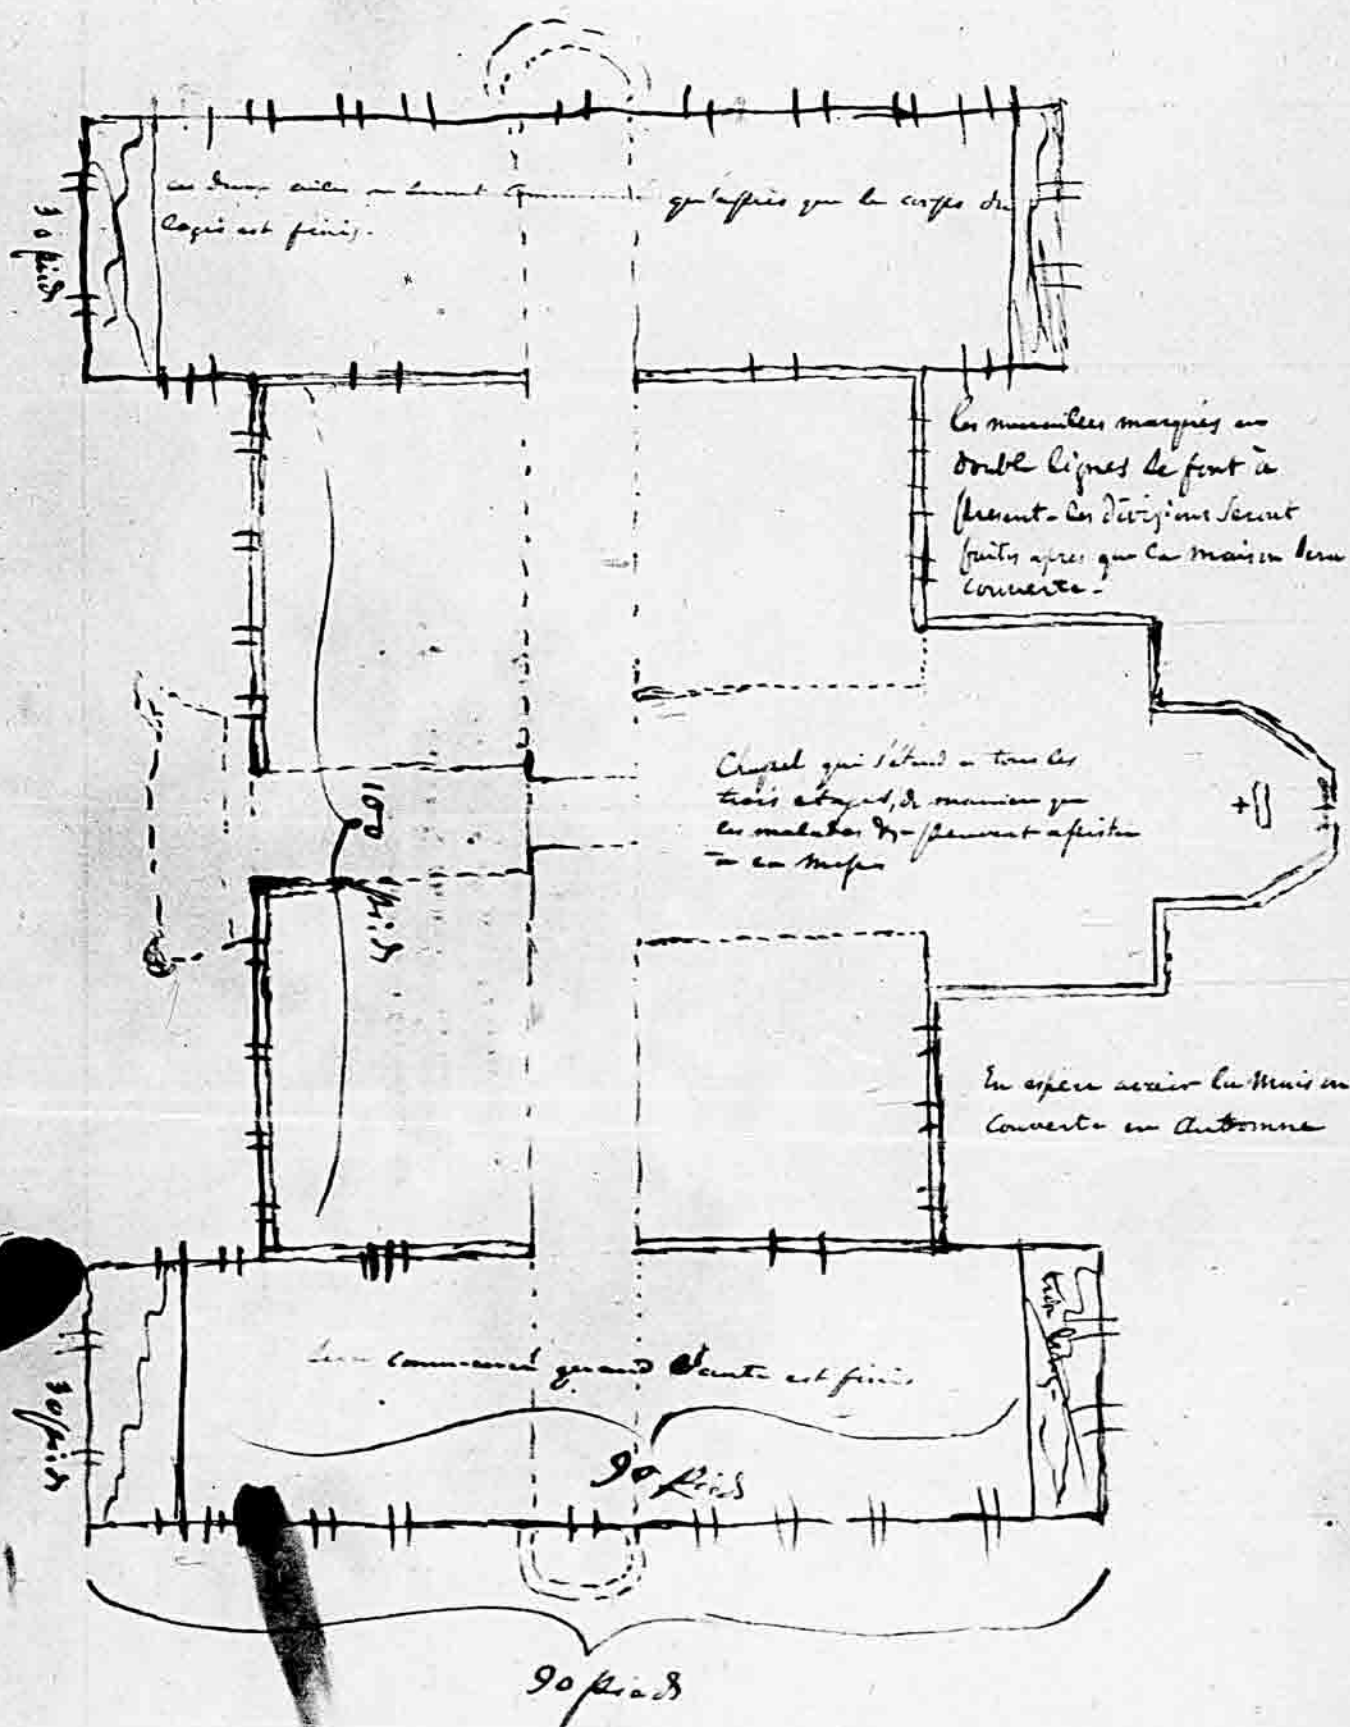 ces deux ailes ne seront qu'après que le corps du
logis est finis.
30 pieds
les murailles marqués en
double lignes se font à
present - les divisions seront
faites apres que la maison sera
couverte -
Chapel qui s'étend a tous les
trois étages, de maniere que
les malades peuvent assister
a la Messe
+
100 pieds
En espere avoir la Maison
Couverte en Automne
sera commencé quand l'autre est finis
30 pieds
90 pieds
90 pieds